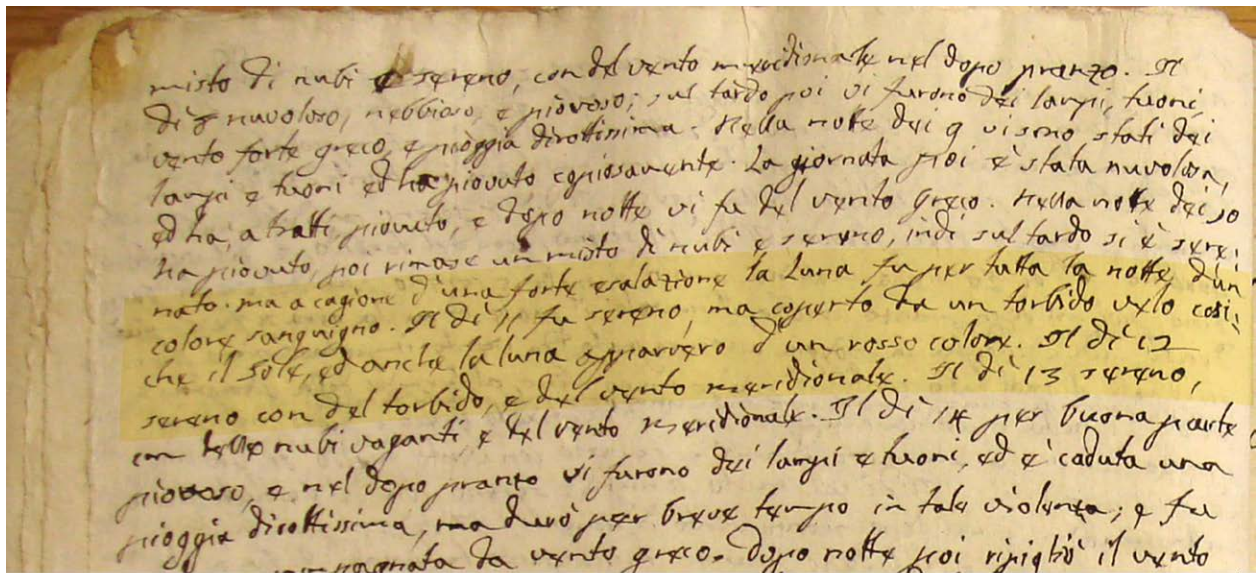 misto di nubi e sereno, con del vento meridionale nel dopo pranzo. Il
dì 8 nuvoloso, nebbioso, e piovoso; sul tardo poi vi furono dei lampi, tuoni,
vento forte greco, e pioggia dirottissima. Nella notte dei 9 vi sono stati dei
lampi e tuoni ed ha piovuto copiosamente. La giornata poi è stata nuvolosa,
ed ha, a tratti piovuto, e dopo notte vi fu del vento greco. Nella notte dei 10
ha piovuto, poi rimase un misto di nubi e sereno, indi sul tardo si è sere:
nato. ma a cagione d'una forte esalazione la Luna fu per tutta la notte d'un
colore sanguigno. Il dì 11 fu sereno, ma coperto da un torbido velo così:
che il Sole, ed anche la luna apparvero d'un rosso colore. Il dì 12
sereno con del torbido, e del vento meridionale. Il dì 13 sereno,
con delle nubi vaganti, e del vento meridionale. Il dì 14 per buona parte
piovoso, e nel dopo pranzo vi furono dei lampi e tuoni, ed è caduta una
pioggia dirottissima, ma durò per breve tempo in tale violenza; e fu
da vento greco. Dopo notte poi ripigliò il vento